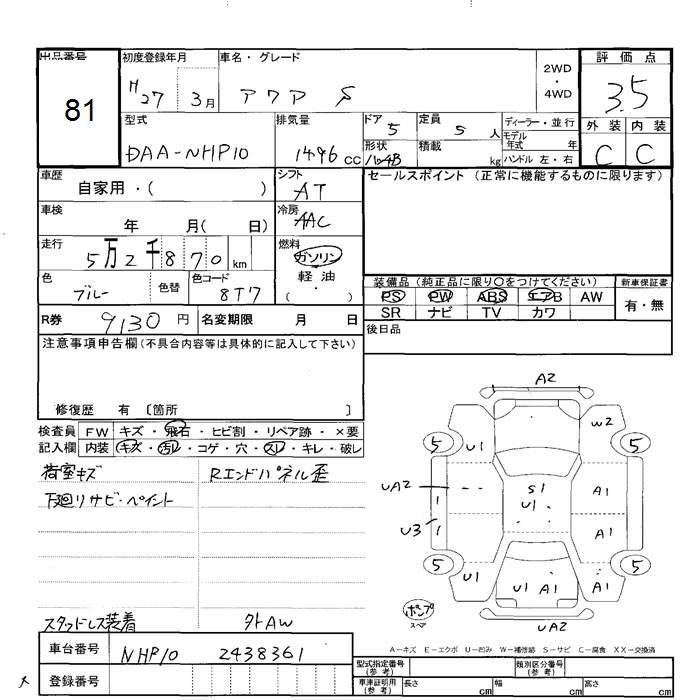 出品番号
81
初度登録年月
H27 3月
車名・グレード
アクア S
2WD・4WD
評価点
3.5
型式
DAA-NHP10
排気量
1496 cc
ドア
5
定員
5 人
ディーラー・並行
モデル年式 年
形状
ハッチB
積載 kg
ハンドル 左・右
外装 内装
C C
車歴
自家用・( )
シフト
AT
セールスポイント (正常に機能するものに限ります)
車検
年 月( 日)
冷房
AAC
走行
5万2千870 km
燃料
ガソリン
軽油
・( )
色
ブルー
色替
色コード
8T7
装備品 (純正品に限り○をつけてください)
PS PW ABS エアB AW
SR ナビ TV カワ
新車保証書
有・無
R券 9130 円
名変期限 月 日
後日品
注意事項申告欄(不具合内容等は具体的に記入して下さい)
修復歴 有 〔箇所 〕
検査員記入欄
FW キズ・飛石・ヒビ割・リペア跡・×要
内装 キズ・汚レ・コゲ・穴・スレ・キレ・破レ
荷室キズ
Rエンドパネル歪
下廻りサビ・ペイント
スタッドレス装着
外AW
A2
W2
5 U1 5
UA2 S1 A1
U1
U3 A1
5 5
U1 U1 A1 A1
ポンプ
スペア
UA2
A-キズ E-エクボ U-凹み W-補修跡 S-サビ C-腐食 XX-交換済
車台番号
NHP10 2438361
登録番号
型式指定番号(参考)
類別区分番号(参考)
車庫証明用(参考)
長さ cm 幅 cm 高さ cm